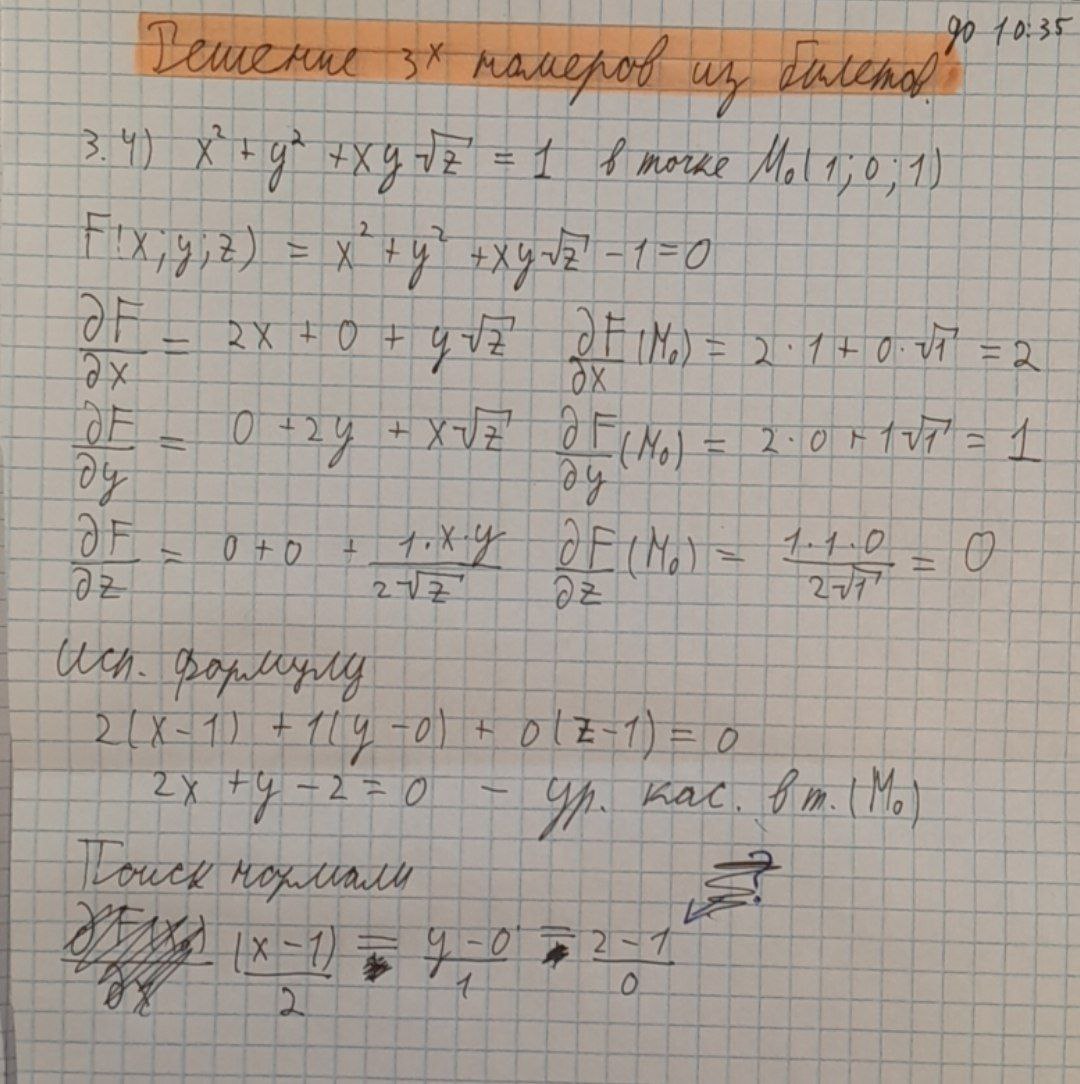 до 10:35
Решение 3х номеров из билетов.
3.4) x² + y² + xy√z = 1 в точке M₀(1;0;1)
F(x;y;z) = x² + y² + xy√z - 1 = 0
∂F/∂x = 2x + 0 + y√z ∂F/∂x (M₀) = 2·1 + 0·√1 = 2
∂F/∂y = 0 + 2y + x√z ∂F/∂y (M₀) = 2·0 + 1√1 = 1
∂F/∂z = 0 + 0 + 1·x·y/2√z ∂F/∂z (M₀) = 1·1·0/2√1 = 0
Исп. формулу
2(x-1) + 1(y-0) + 0(z-1) = 0
2x + y - 2 = 0 - ур. кас. в т. (M₀)
Поиск нормали
?
(x-1)/2 = y-0/1 = z-1/0